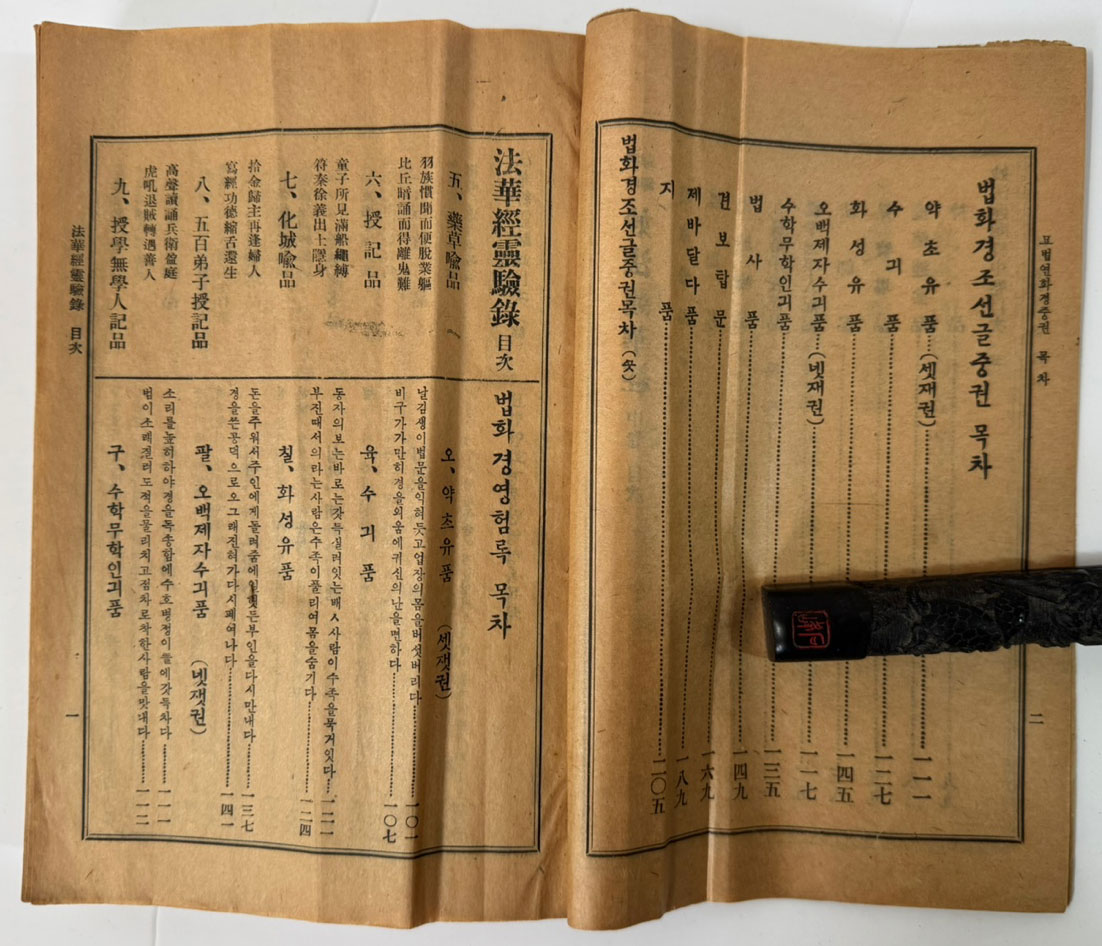 묘법연화경중권 목차
법화경조선글중권 목차
약초유품……(셋재권)……一一一
수긔품……一二七
화성유품……一四五
오백제자수긔품……(넷재권)……一一七
수학무학인긔품……一三五
법사품……一四九
견보탑문……一六九
제바달다품……一八九
지품……二〇五
법화경조선글중권목차(끗)
二
法華經靈驗錄 目次
五、藥草喩品
羽族慣聞而便脫業軀
比丘暗誦而得離鬼難
六、授記品
童子所見滿船繩縛
符秦徐義出土隱身
七、化城喩品
拾金歸主再逢婦人
寫經功德縮舌還生
八、五百弟子授記品
高聲讀誦兵衛盈庭
虎吼退賊轉遇善人
九、授學無學人記品
법화경영험록 목차
오、약초유품 (셋잿권)
날김생이법문을익혀듯고업장의몸을버섯버리다……一〇一
비구가가만히경을외움에귀신의난을면하다……一〇七
육、수긔품
동자의보는바로는갓득실려잇는배ㅅ사람이수족을묵거잇다……一二一
부진때서의라는사람은수족이풀리여몸을숨기다……一二四
칠、화성유품
돈을주워서주인에게돌려줌에일헛든부인을다시만내다……一三七
경을쓴공덕으로오그래진혀가다시페여나다……一四一
팔、오백제자수긔품 (넷잿권)
소리를높히하야경을독송함에수호병정이뜰에갓득차다……一一一
범이소래질러도적을물리치고점차로착한사람을맛내다……一一二
구、수학무학인긔품
法華經靈驗錄 目次
一